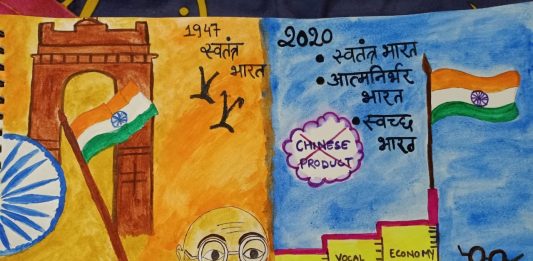 1947
स्वतंत्र
भारत
2020
• स्वतंत्र भारत
• आत्मनिर्भर
भारत
• स्वच्छ
भारत
CHINESE
PRODUCT
VOCAL
ECONOMY